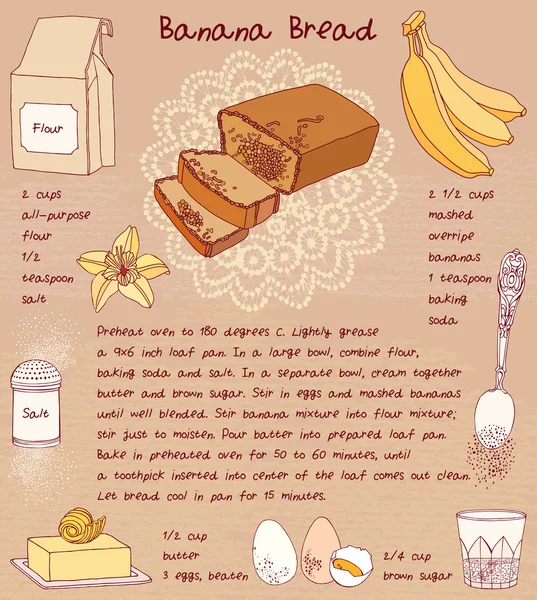 Banana Bread
Flour
2 cups
all-purpose
flour
1/2
teaspoon
salt
2 1/2 cups
mashed
overripe
bananas
1 teaspoon
baking
soda
Preheat oven to 180 degrees C. Lightly grease
a 9x6 inch loaf pan. In a large bowl, combine flour,
baking soda and salt. In a separate bowl, cream together
butter and brown sugar. Stir in eggs and mashed bananas
until well blended. Stir banana mixture into flour mixture;
stir just to moisten. Pour batter into prepared loaf pan.
Bake in preheated oven for 50 to 60 minutes, until
a toothpick inserted into center of the loaf comes out clean.
Let bread cool in pan for 15 minutes.
Salt
1/2 cup
butter
3 eggs, beaten
2/4 cup
brown sugar